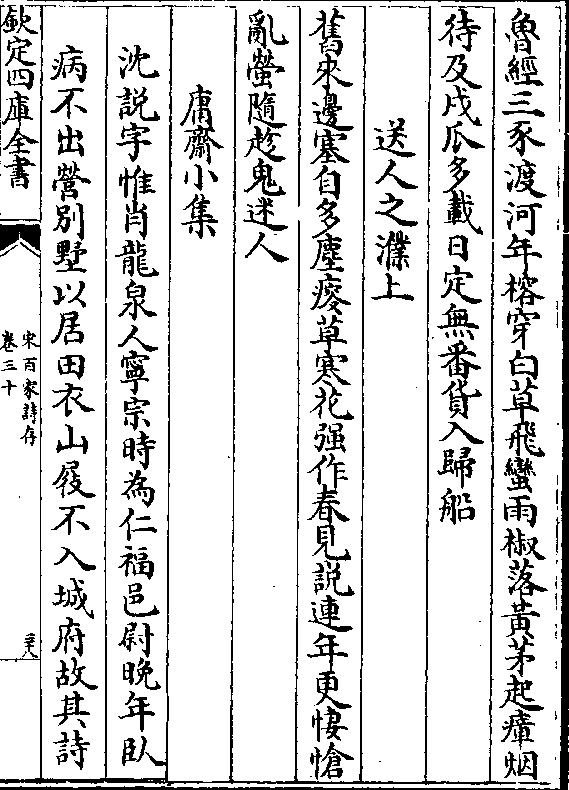 魯經三豕渡河年榕穿白草飛蠻雨椒落黃茅起瘴烟
待及戌瓜多載日定無番貨入歸船
送人之濮上
舊來邊塞自多塵瘦草寒花强作春見説連年更悽愴
亂螢隨趁鬼迷人
庸齋小集
沈説字惟肖龍泉人寧宗時為仁福邑尉晚年臥
病不出營别墅以居田衣山屐不入城府故其詩
欽定四庫全書
宋百家詩存
卷三十
三八